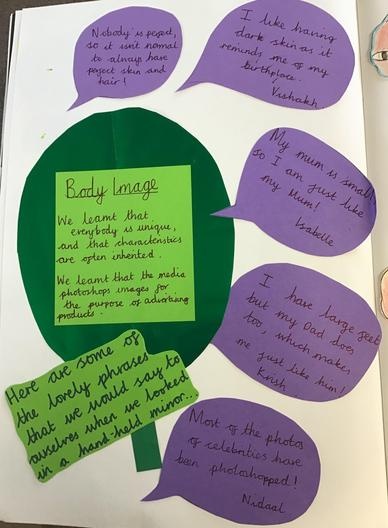 Nobody is perfect,
so it isn't normal
to always have
perfect skin and
hair!
I like having
dark skin as it
reminds me of my
birthplace.
Vishakh.
Body Image
We learnt that
everybody is unique,
and that characteristics
are often inherited.
We learnt that the media
photoshops images for
the purpose of advertising
products.
My mum is small
so I am just like
my Mum!
Isabelle
I have large feet
but my Dad does
too, which makes
me just like him!
Krish
Here are some of
the lovely phrases
that we would say to
ourselves when we looked
in a hand-held mirror..
Most of the photos
of celebrities have
been photoshopped!
Nidaal